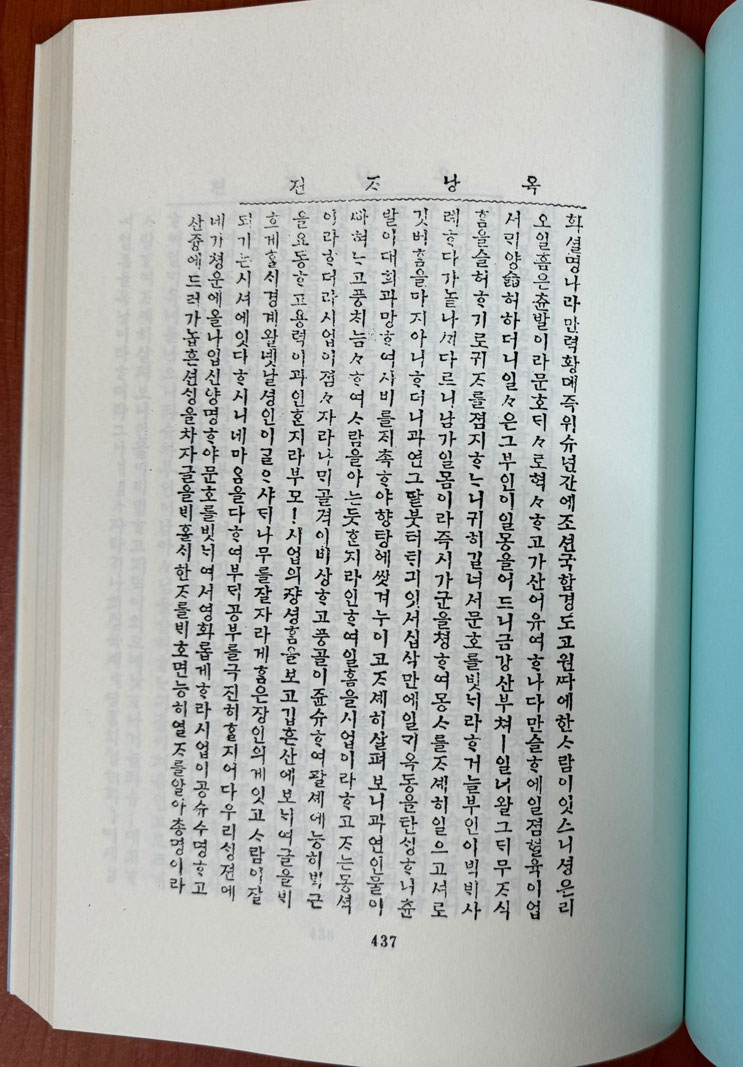 옥낭ᄌᆞ전
화셜명나라만력황뎨즉위슈년간에조션국함경도고원ᄯᅡ에한ᄉᆞ람이잇스니셩은리
오일홈은츈발이라문호ᄃᆡ々로혁々ᄒᆞ고가산이유여ᄒᆞ나다만슬ᄒᆞ에일졈혈육이업
서ᄆᆡ양셟허하더니일々은그부인이일몽을어드니금강산부쳐ㅣ일너왈그ᄃᆡ무ᄌᆞ식
홈을슬허ᄒᆞ기로귀ᄌᆞ를졈지ᄒᆞᄂᆞ니귀히길너서문호를빗ᄂᆡ라ᄒᆞ거늘부인이ᄇᆡᆨᄇᆡ사
례ᄒᆞ다가놀나ᄭᆡ다르니남가일몽이라즉시가군을쳥ᄒᆞ여몽ᄉᆞ를ᄌᆞ셰히일으고셔로
깃버홈을마지아니ᄒᆞ더니과연그달붓터ᄐᆡ긔잇서십삭만에일ᄀᆡ옥동을탄ᄉᆡᆼᄒᆞ니츈
발이대희과망ᄒᆞ여시비를ᄌᆡ촉ᄒᆞ야향탕에씻겨누이고ᄌᆞ셰히살펴보니과연인물이
ᄲᅡ혀ᄂᆞ고풍치늠々ᄒᆞ여ᄉᆞ람을아는듯ᄒᆞᆫ지라인ᄒᆞ여일홈을시업이라ᄒᆞ고ᄌᆞ는몽셕
이라ᄒᆞ더라시업이졈々자라나ᄆᆡ골격이비상ᄒᆞ고풍골이쥰슈ᄒᆞ여팔셰에능히ᄇᆡᆨ근
을요동ᄒᆞ고용력이과인ᄒᆞᆫ지라부모ㅣ시업의쟝셩홈을보고깁흔산에보ᄂᆡ여글을ᄇᆡ
흐게ᄒᆞᆯᄉᆡ경계왈녯날셩인이글ᄋᆞ샤ᄃᆡ나무를잘자라게홈은장인의게잇고ᄉᆞ람이잘
되기는시셔에잇다ᄒᆞ시니네마음을다ᄒᆞ여부ᄃᆡ공부를극진히ᄒᆞᆯ지어다우리ᄉᆡᆼ젼에
네가쳥운에올나입신양명ᄒᆞ야문호를빗ᄂᆡ여서영화롭게ᄒᆞ라시업이공슈수명ᄒᆞ고
산즁에드러가놉흔션ᄉᆡᆼ을차자글을ᄇᆡ홀ᄉᆡ한ᄌᆞ를ᄇᆡ호면능히열ᄌᆞ를알아총명이라
437